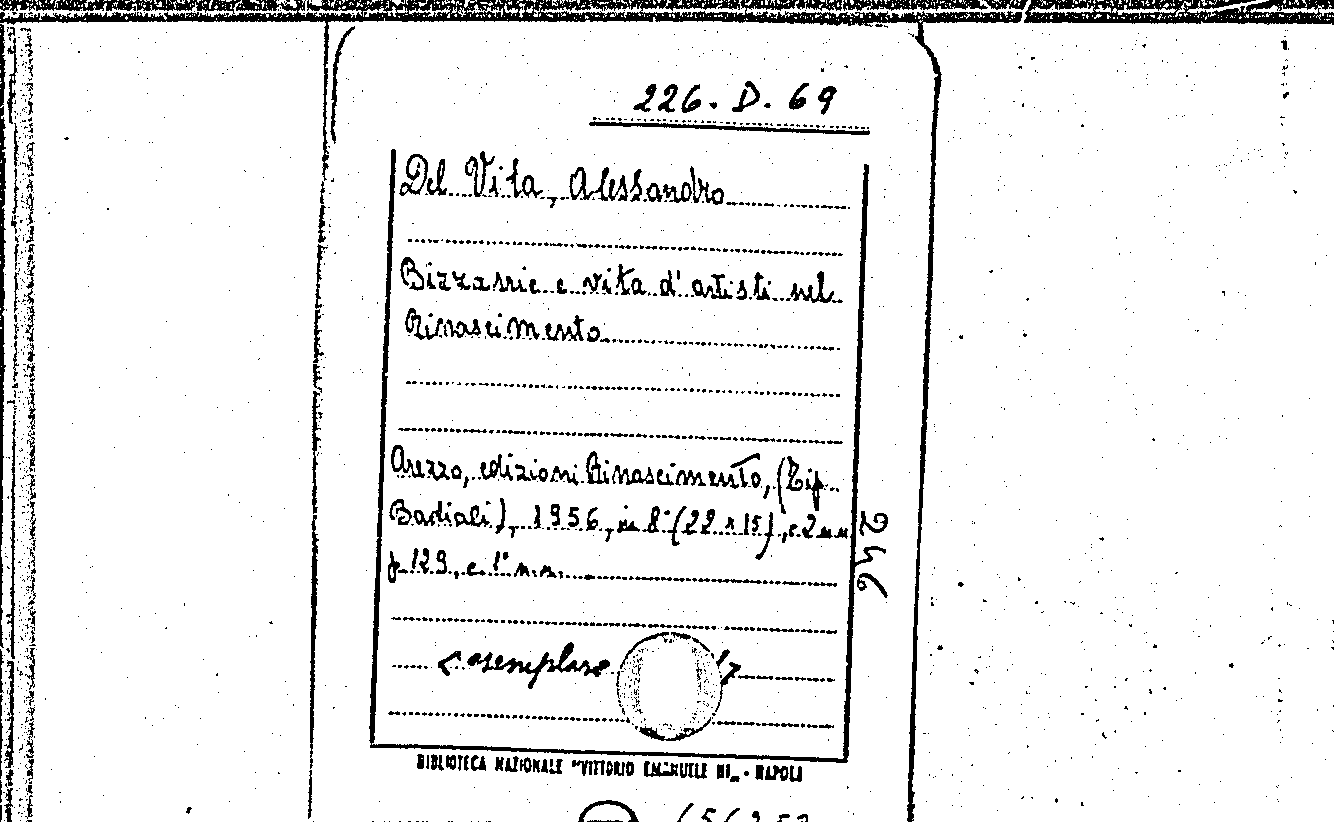 226. D. 69
Del Vita, Alessandro
Bizzarrie e vita d'artisti nel
Rinascimento
Arezzo, edizioni Rinascimento, (Tip.
Badiali), 1956, in 8° (22 x 15), c. 2 n.n.
p. 129, c. 1° n.n.
246
< esemplare >
BIBLIOTECA NAZIONALE "VITTORIO EMANUELE III" - NAPOLI